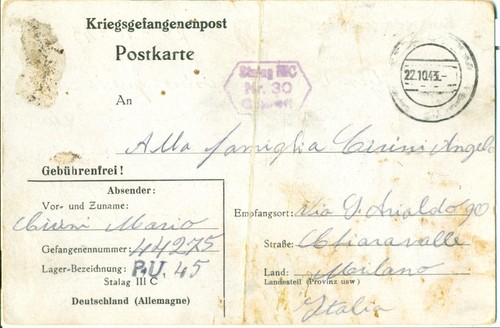 Kriegsgefangenenpost
Postkarte
Stalag IIIC
Nr. 30
Geprüft
22.10.43.-
An
Alla famiglia Angelo
Gebührenfrei!
Absender:
Vor- und Zuname:
Mario
Gefangenennummer: 44275
Lager-Bezeichnung: P.U. 45
Stalag III C
Deutschland (Allemagne)
Empfangsort: Via S. Arialdo 90
Straße: Chiaravalle
Land: Milano
Landesteil (Provinz usw)
Italia